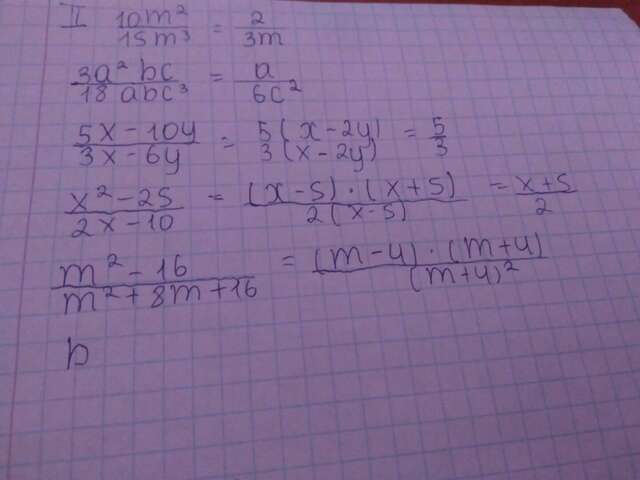 II 10m²/15m³ = 2/3m
3a²bc/18abc³ = a/6c²
5x-10y/3x-6y = 5(x-2y)/3(x-2y) = 5/3
x²-25/2x-10 = (x-5)·(x+5)/2(x-5) = x+5/2
m²-16/m²+8m+16 = (m-4)·(m+4)/(m+4)²
b